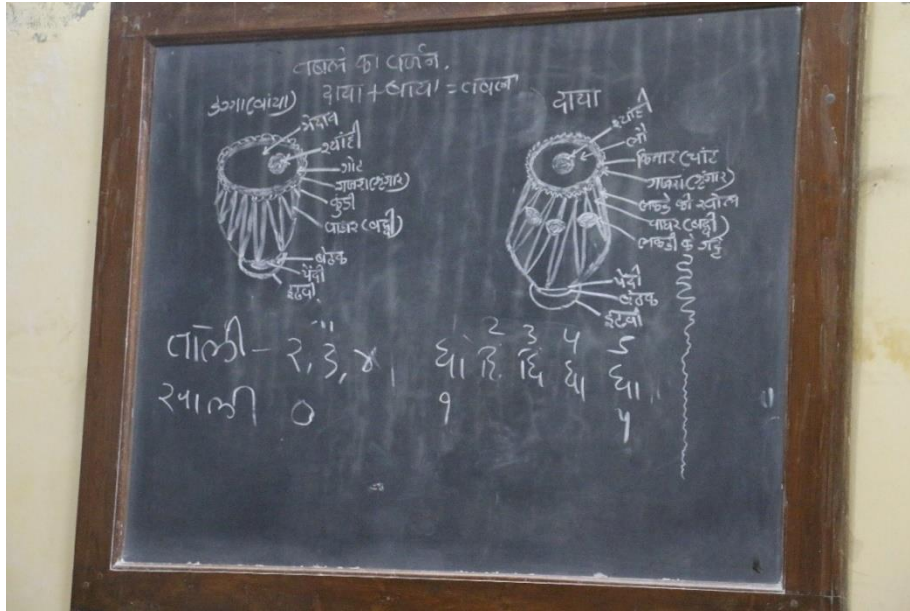 तबले का वर्णन.
दाया + बाया = तबल
डग्गा (बांया)
मैदान
स्याही
गोट
गजरा (शृंगार)
कुडी
वाघर (बद्दी)
बैठक
पेंदी
इटवी
दाया
स्याही
लौ
किनार (चांट
गजरा (शृंगार)
लकडे की खोल
वाघर (बद्दी)
लकडी के गट्टे
पेंदी
बैठक
इटवी
2 3 4 5
ताली - २, ३, ४, धा धिं धिं धा धा
खाली 0 १ ५